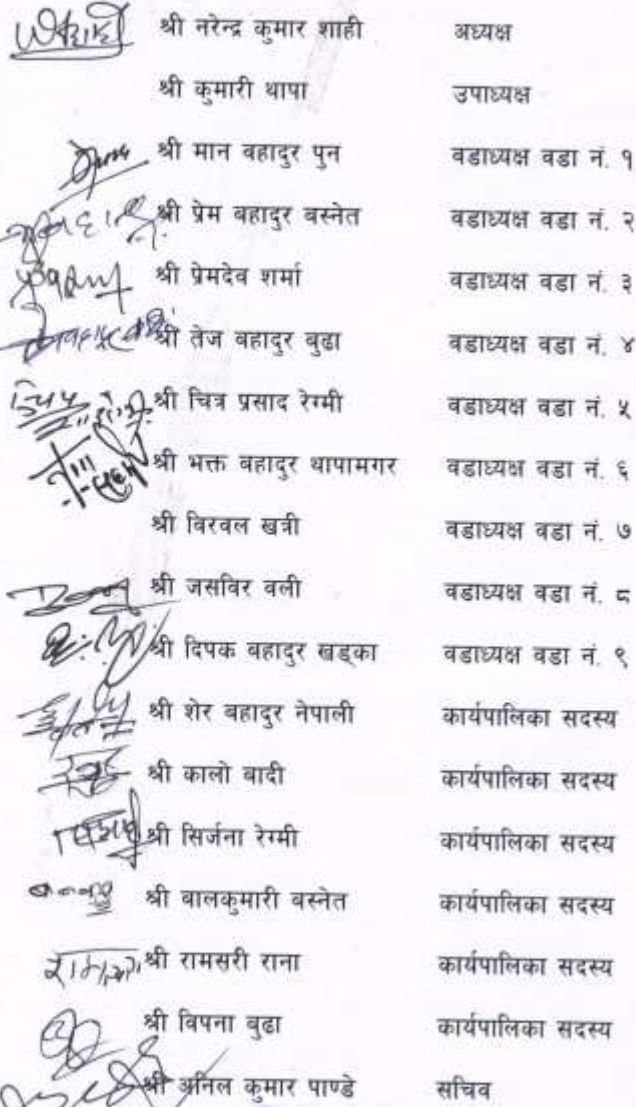 श्री नरेन्द्र कुमार शाही अध्यक्ष
श्री कुमारी थापा उपाध्यक्ष
श्री मान वहादुर पुन वडाध्यक्ष वडा नं. १
श्री प्रेम वहादुर वस्नेत वडाध्यक्ष वडा नं. २
श्री प्रेमदेव शर्मा वडाध्यक्ष वडा नं. ३
श्री तेज वहादुर वुढा वडाध्यक्ष वडा नं. ४
श्री चित्र प्रसाद रेग्मी वडाध्यक्ष वडा नं. ५
श्री भक्त वहादुर थापामगर वडाध्यक्ष वडा नं. ६
श्री विरवल खत्री वडाध्यक्ष वडा नं. ७
श्री जसविर वली वडाध्यक्ष वडा नं. ८
श्री दिपक वहादुर खड्का वडाध्यक्ष वडा नं. ९
श्री शेर वहादुर नेपाली कार्यपालिका सदस्य
श्री कालो वादी कार्यपालिका सदस्य
श्री सिर्जना रेग्मी कार्यपालिका सदस्य
श्री वालकुमारी वस्नेत कार्यपालिका सदस्य
श्री रामसरी राना कार्यपालिका सदस्य
श्री विपना वुढा कार्यपालिका सदस्य
श्री अनिल कुमार पाण्डे सचिव